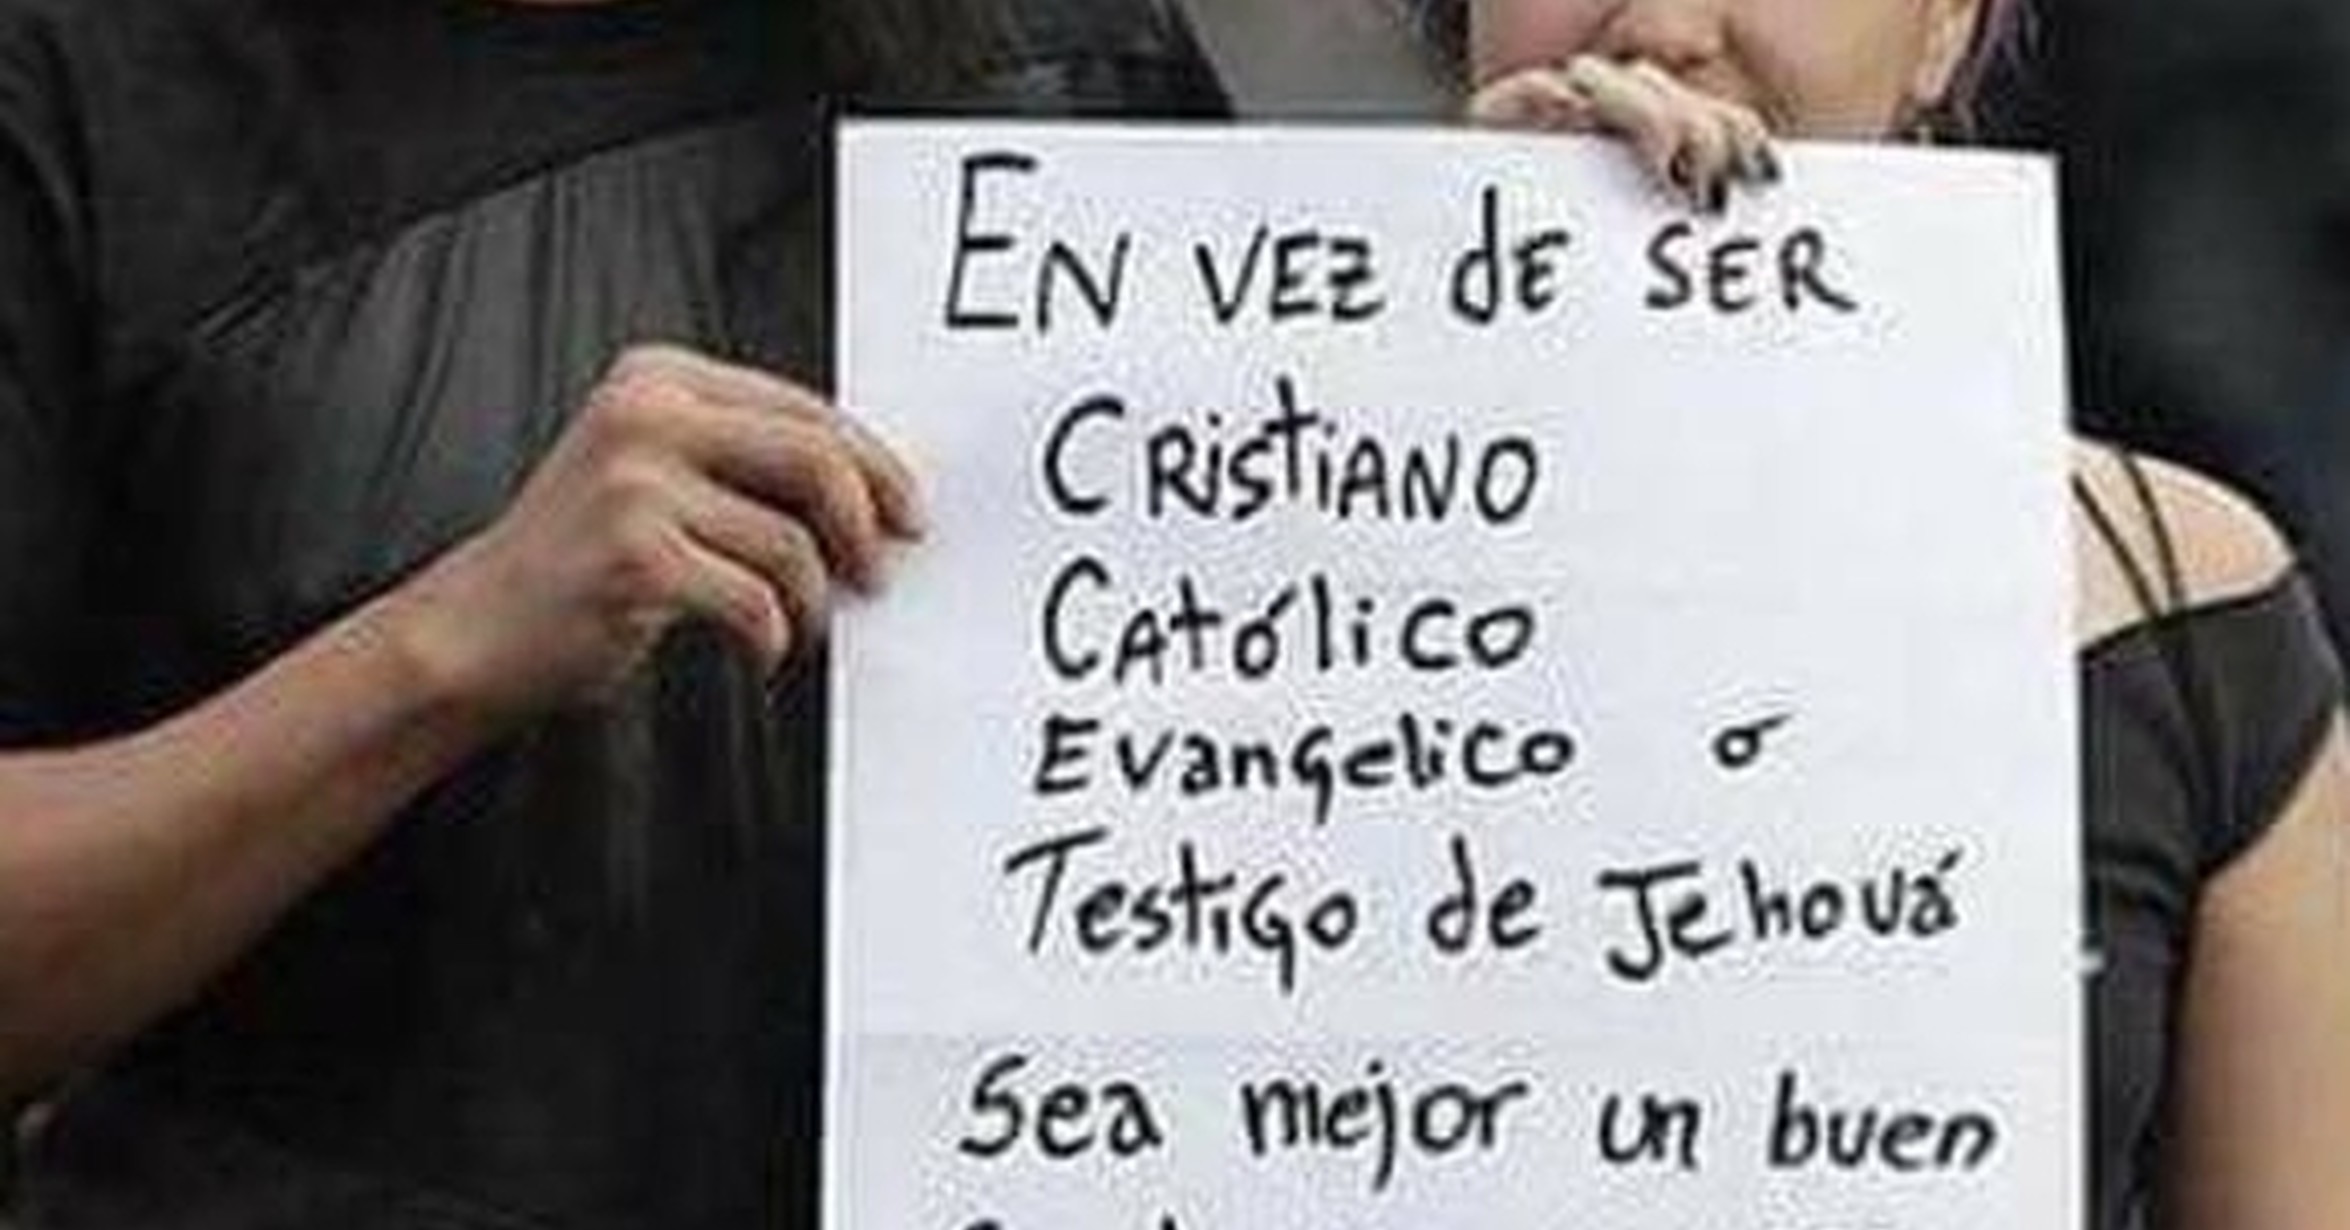 EN VEZ dE SER
CRiStiANO
CAtólico
Evangelico ó
TestiGo de Jehová
Sea mejor un buen